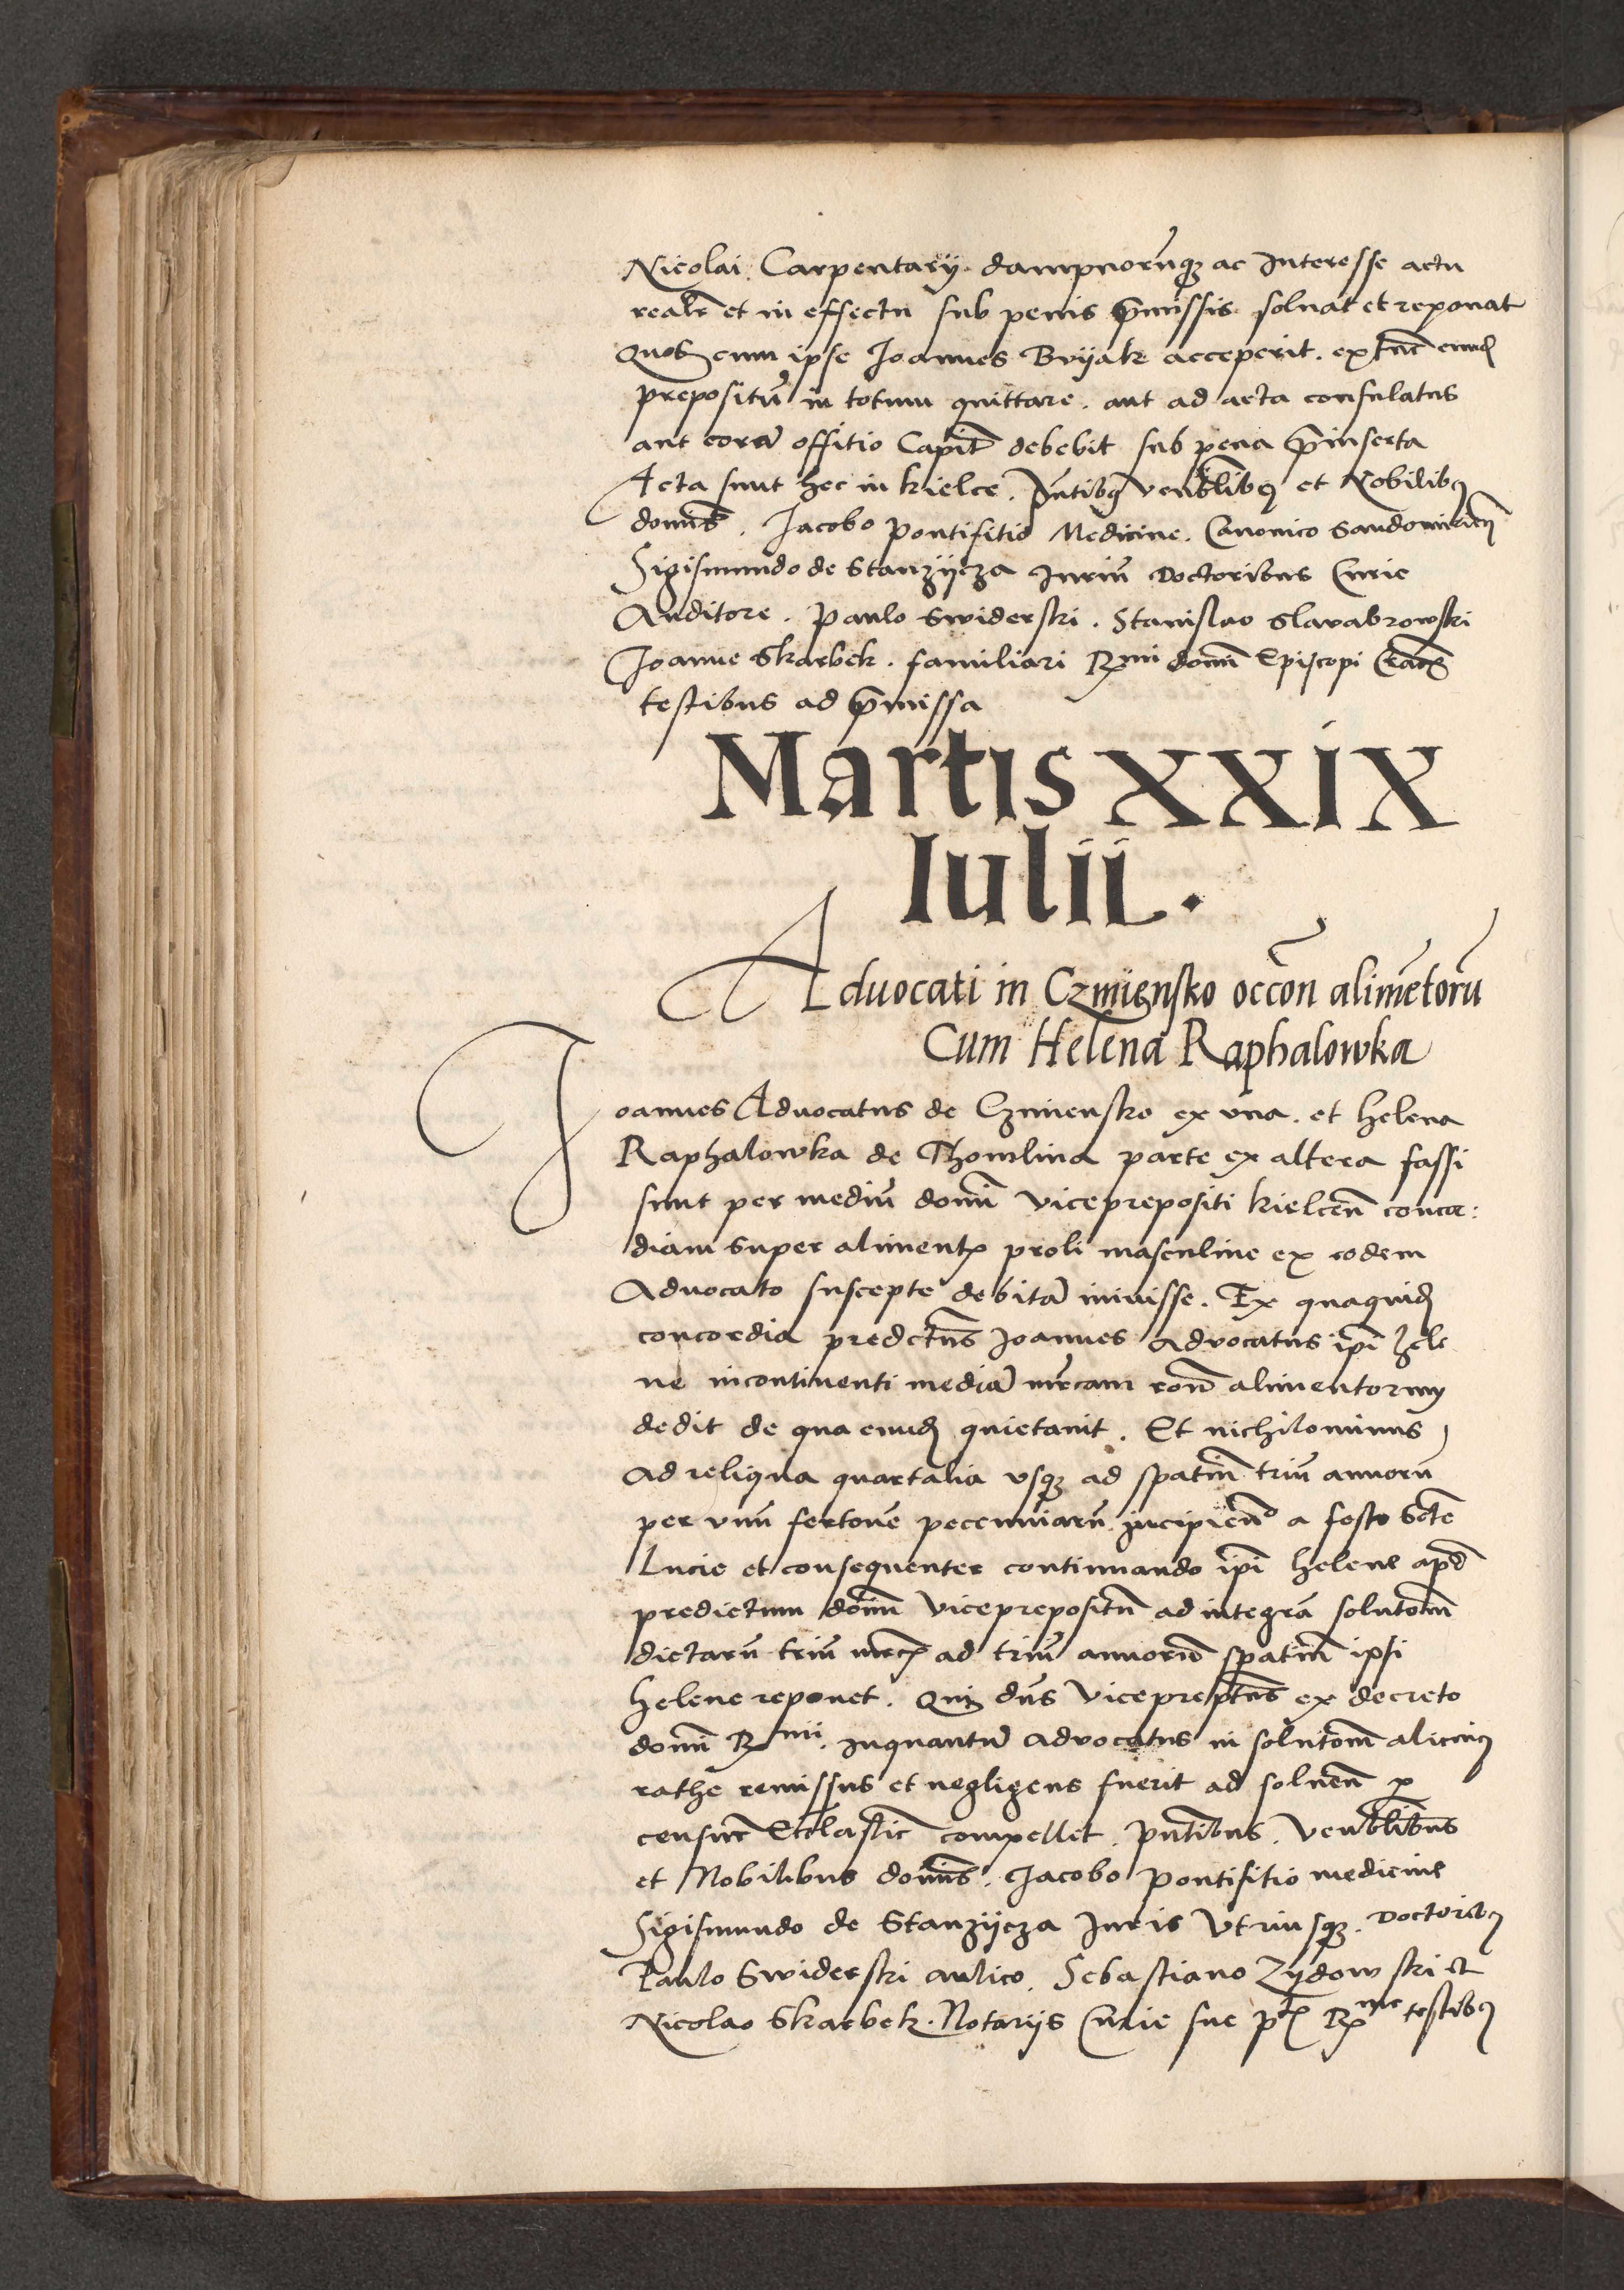 Nicolai Carpentarij dampnorũqȝ ac Interesse actu
realr̃ et in effectu sub penis p̃missis soluat et reponat
Quos cum ipse Joannes Bvijak acceperit. ex tũc eund̃
prepositũ in totum quittare. aut ad acta consulatus
aut corã offitio Capit̃ debebit sub pena p̃inserta
Acta sunt hec in kielce. Pñtibꝫ venl̃ibꝫ et Nobilibꝫ
domĩs. Jacobo Pontifitio Medicine. Canonico Sandomirieñ
Sigismundo de Stanzijcza Juriũ Doctoribus Curie
Auditore. Paulo Swiderski. Stanislao Slavabrowski
Joanne Skarbek. familiari R̃mi domĩ Episcopi Cracõ
testibus ad p̃missa
Martis XXIX
Iulii.
Aduocati in Czmiensko occõn alimẽtorũ
Cum Helena Raphalowka
Joannes Aduocatus de Czmiensko ex vna. et helena
Raphalowka de Thomlina parte ex altera fassi
sunt per mediũ domĩ Viceprepositi kielceñ concor:
diam super aliment̃ proli masculine ex eodem
Aduocato suscepte debitã iniuisse. Ex quaquid̃
concordia predct̃us Joannes Advocatus ip̃i hele
ne incontinenti mediã mr̃cam rõne alimentorum
dedit de qua eund̃ quietauit. Et nichilominus
ad reliqua quartalia vsqȝ ad spatiũ triũ annorũ
per vnũ fertonẽ pecunniarũ incipieñd a festo Sctẽ
Lucie et consequenter continuando ip̃i helene apd̃
predictum domĩ Viceprepositũ ad integrã solutõm
dictarũ triũ mrc̃ ad triũ annorũ spatiũ ipsi
helene reponet. Qui dñs Viceprept̃us ex decreto
domĩ Rmi. inquantũ advocatus in solutõm alicuiꝫ
rathe remissus et negligens fuerit ad soluẽn p
censur̃ Eccl̃astic̃ compellet. pñtibus. Venl̃ibus
et Nobilibus domĩs. Jacobo Pontifitio medicine
Sigismundo de Stanzijcza Juris Vtriusqȝ. Doctoribꝫ
Paulo Swiderski aulico. Sebastiano Zydowski et
Nicolao Skarbek. Notarijs Curie sue p̃t Rme testibꝫ